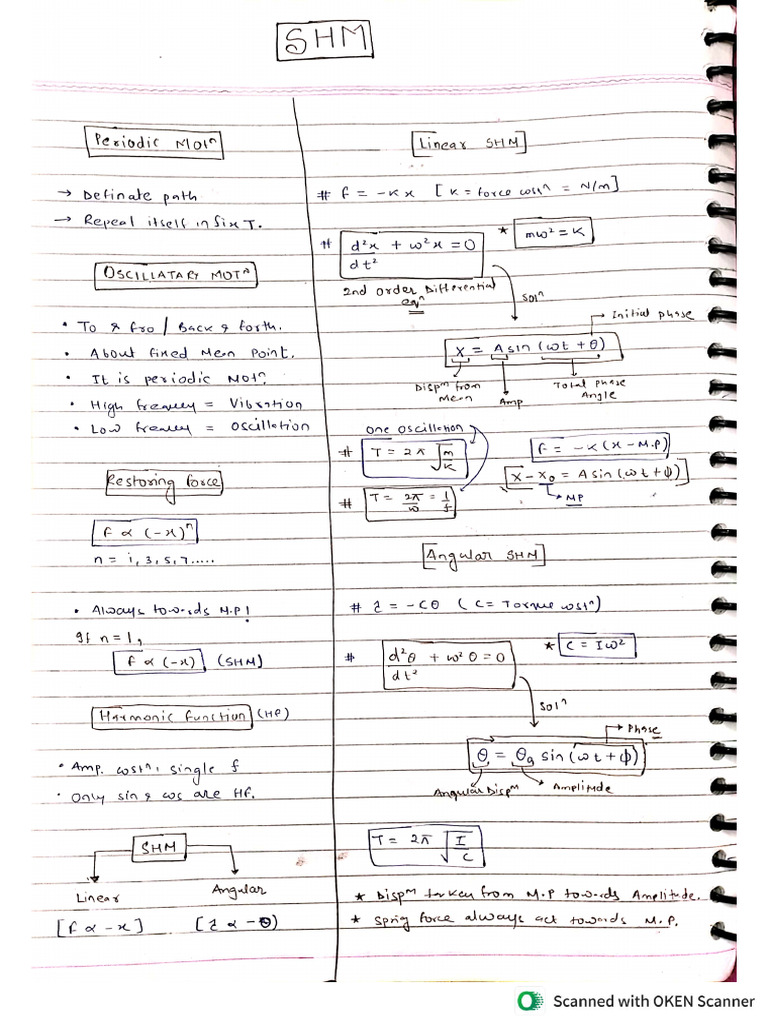 SHM
Periodic Motⁿ
→ Definate path
→ Repeat itself in fix T.
OSCILLATARY MOTⁿ
• To & fro / Back & forth.
• About fixed Mean Point.
• It is periodic Motⁿ.
• High frequency = Vibration
• Low frequency = oscillation
Restoring force
f ∝ (-x)ⁿ
n = 1, 3, 5, 7.....
• Always towards M.P!
If n = 1,
f ∝ (-x) (SHM)
Harmonic function (HF)
• Amp. costⁿ, single f
• Only sin & cos are HF.
SHM
Linear
Angular
[f ∝ -x]
[τ ∝ -θ)
Linear SHM
# f = -Kx [K = force costⁿ = N/m]
# d²x/dt² + ω²x = 0
★ mω² = K
2nd Order Differential
eqⁿ
Solⁿ
→ Initial phase
x = A sin (ωt + θ)
Dispᵐ from
Mean
Amp
Total Phase
Angle
One Oscillation
# T = 2π √m/K
f = -K(x - M.P)
x - x₀ = A sin (ωt + ϕ)
→ MP
# T = 2π/ω = 1/f
[Angular SHM]
# τ = -Cθ (C = Torque costⁿ)
# d²θ/dt² + ω²θ = 0
★ C = Iω²
Solⁿ
→ Phase
θ = θ₀ sin (ωt + ϕ)
Angular Dispᵐ
Amplitude
T = 2π √I/C
★ Dispᵐ taken from M.P towards Amplitude.
★ Sprig force always act towards M.P.
Scanned with OKEN Scanner